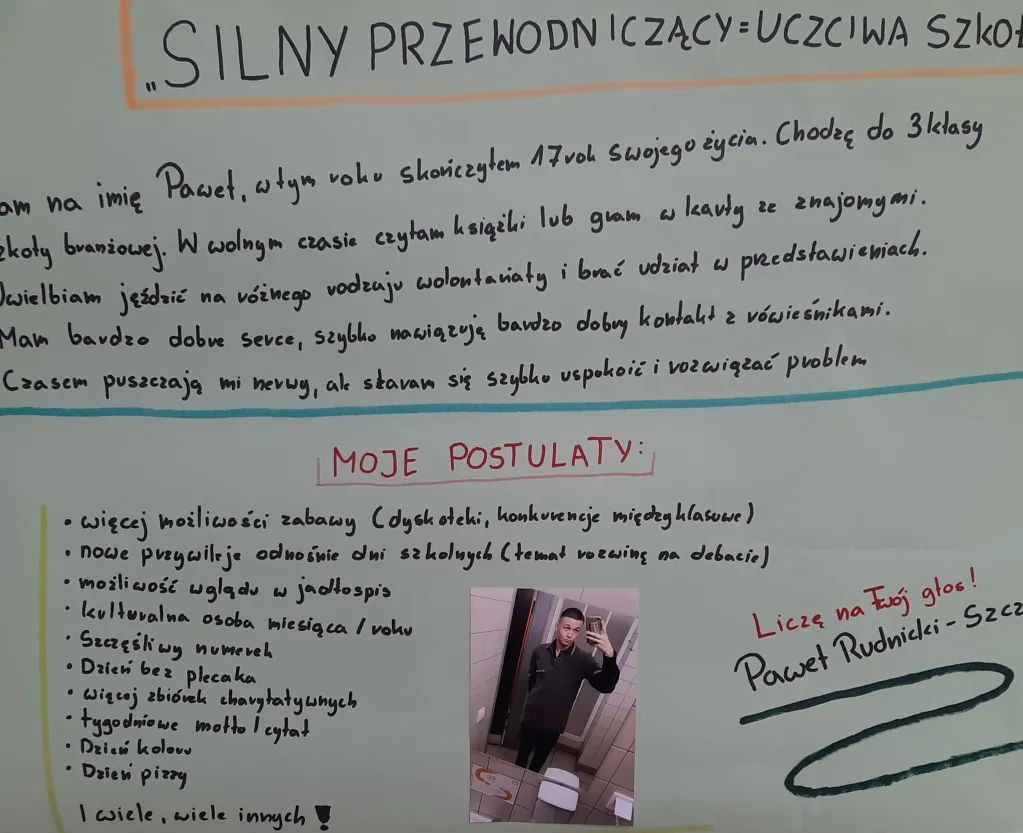 „SILNY PRZEWODNICZĄCY=UCZCIWA SZKOŁ
am na imię Paweł, w tym roku skończyłem 17 rok swojego życia. Chodzę do 3 klasy
zkoły branżowej. W wolnym czasie czytam książki lub gram w karty ze znajomymi.
Uwielbiam jeździć na różnego rodzaju wolontariaty i brać udział w przedstawieniach.
Mam bardzo dobre serce, szybko nawiązują bardzo dobry kontakt z rówieśnikami.
Czasem puszczają mi nerwy, ale staram się szybko uspokoić i rozwiązać problem
MOJE POSTULATY:
• więcej możliwości zabawy (dyskoteki, konkurencje międzyklasowe)
• nowe przywileje odnośnie dni szkolnych (temat rozwinę na debacie)
• możliwość wglądu w jadłospis
• kulturalna osoba miesiąca / roku
• Szczęśliwy numerek
• Dzień bez plecaka
• więcej zbiórek charytatywnych
• tygodniowe motto / cytat
• Dzień koloru
• Dzień pizzy
I wiele, wiele innych!
Liczę na Twój głos!
Paweł Rudnicki-Szcz